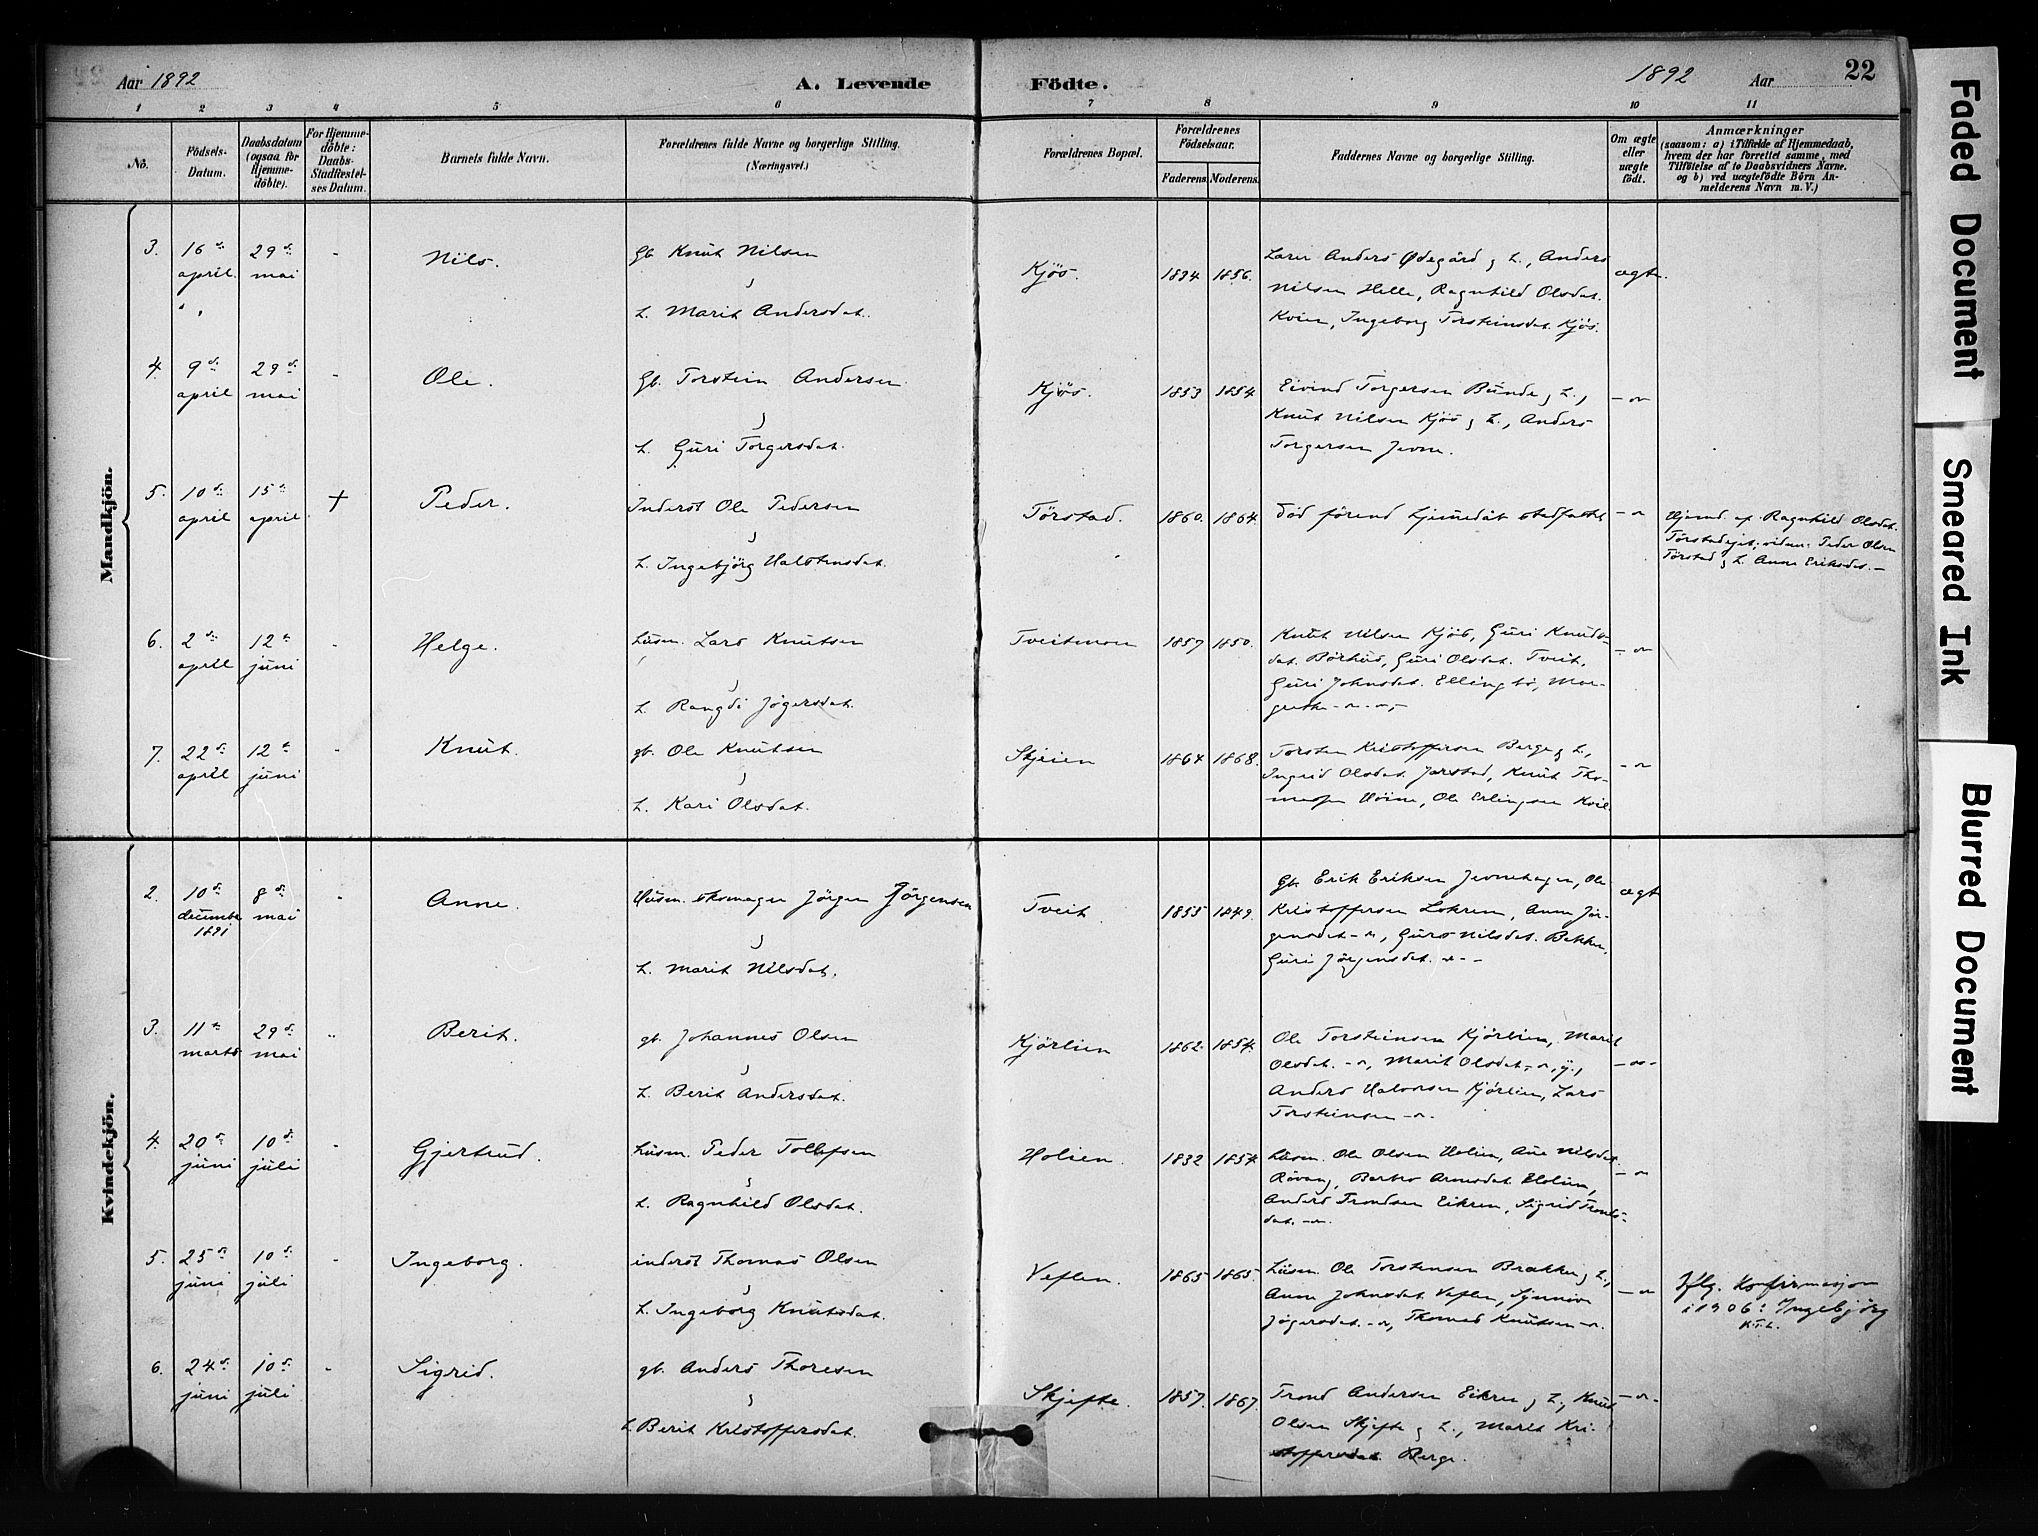 Aar 1892
A. Levende Födte.
1892 Aar 22
1 2 3 4 5 6 7 8 9 10 11
No.
Födsels-Datum.
Daabsdatum (ogsaa for Hjemme-döbte).
For Hjemme-döbte: Daabs-Stadfæstel-ses Datum.
Barnets fulde Navn.
Forældrenes fulde Navne og borgerlige Stilling. (Næringsvei.)
Forældrenes Bopæl.
Forældrenes Födselsaar.
Faderens. Moderens.
Faddernes Navne og borgerlige Stilling.
Om ægte eller uægte födt.
Anmærkninger
(saasom: a) i Tilfælde af Hjemmedaab,
hvem der har forrettet samme, med
Tilföielse af to Daabsvidners Navne.
og b) ved uægtefödte Börn An-
melderens Navn m.V.)
Mandkjön.
3. 16 april 29 mai - Nils. Gb. Knut Nilsen
H. Marit Andersdat.
Kjös. 1856. Anders Ødegård, Anders ægte.
Nilsen Helle, Ragnhild Olsdat.
Kvien, Ingeborg Torsteinsdat. Kjös.
4. 9 april 29 mai - Ole. Gb. Torstein Andersen
H. Guri Torgersdat.
Kjös. 1853 1854 Eivind Torgersen Bunde
Knut Nilsen Kjös, Anders
Torgersen Jevne.
5. 10 april 15 april + Peder. Inderst Ole Pedersen
H. Ingebjörg Halstensdat.
Törstad. 1860. 1864. död förend hjemmedåb stadfæstet
Hjemd. af Ragnhild Olsdat.
Peder Olsen
Törstad, Anne Eriksdat.
6. 2 april 12 juni - Helge. Husm. Lars Knutsen
H. Rangdi Jögersdat.
Tveitmoen 1857 1850. Knut Nilsen Kjös, Guri Knuds-
dat. Börhus, Guri Olsdat. Tveit,
Guri Johnsdat. Ellingbö, Mar-
grethe
7. 22 april 12 juni - Knut. gb. Ole Knutsen
H. Kari Olsdat.
Skjeien 1864 1868. Torsten Kristoffersen Berge
Ingrid Olsdat. Jarstad, Knut Tho-
messen Höine, Ole Erlingsen Kvil
Kvindekjön.
2. 10 december 1891 8 mai - Anne. Husm. skomager Jörgen Jörgensen
H. Marit Nilsdat.
Tveit 1855 1849. Gb. Erik Eriksen Jevnehagen, Ole ægte
Kristoffersen Lokren, Anne Jör-
gensdat, Guro Nilsdat. Bakken,
Guri Jörgensdat.
3. 11 marts 29 mai Berit. gb. Johannes Olsen
H. Berit Andersdat.
Kjörlien 1862. 1854. Ole Torsteinsen Kjörlien, Marit
Olsdat., Marit Olsdat. y.,
Anders Halvorsen Kjörlien, Lars
Torsteinsen
4. 20 juni 10 juli - Gjertrud. Husm. Peder Tollefsen
H. Ragnhild Olsdat.
Holien. 1832 1854. Husm. Ole Olsen Holien, Ane Nilsdat.
Arnesdat. Holien,
Anders Trondsen Eikren, Sigrid Tronds-
dat.
5. 25 juni 10 juli - Ingeborg. inderst Thomas Olsen
H. Ingeborg Knutsdat.
Veflen. 1865 1865. Husm. Ole Torstensen Brække
Anne Johnsdat. Veflen, Synnöve
Jögersdat., Thomas Knutsen
Iflg. Konfirmasjon
i 1906: Ingebjörg
K.T.L.
6. 24 juni 10 juli - Sigrid. gb. Anders Thoresen
H. Berit Kristoffersdat.
Skjefte. 1857. 1867. Trond Andersen Eikren, Knut
Olsen Skjefte, Marit Kri-
stoffersdat. Berge.
Faded Document
Smeared Ink
Blurred Document